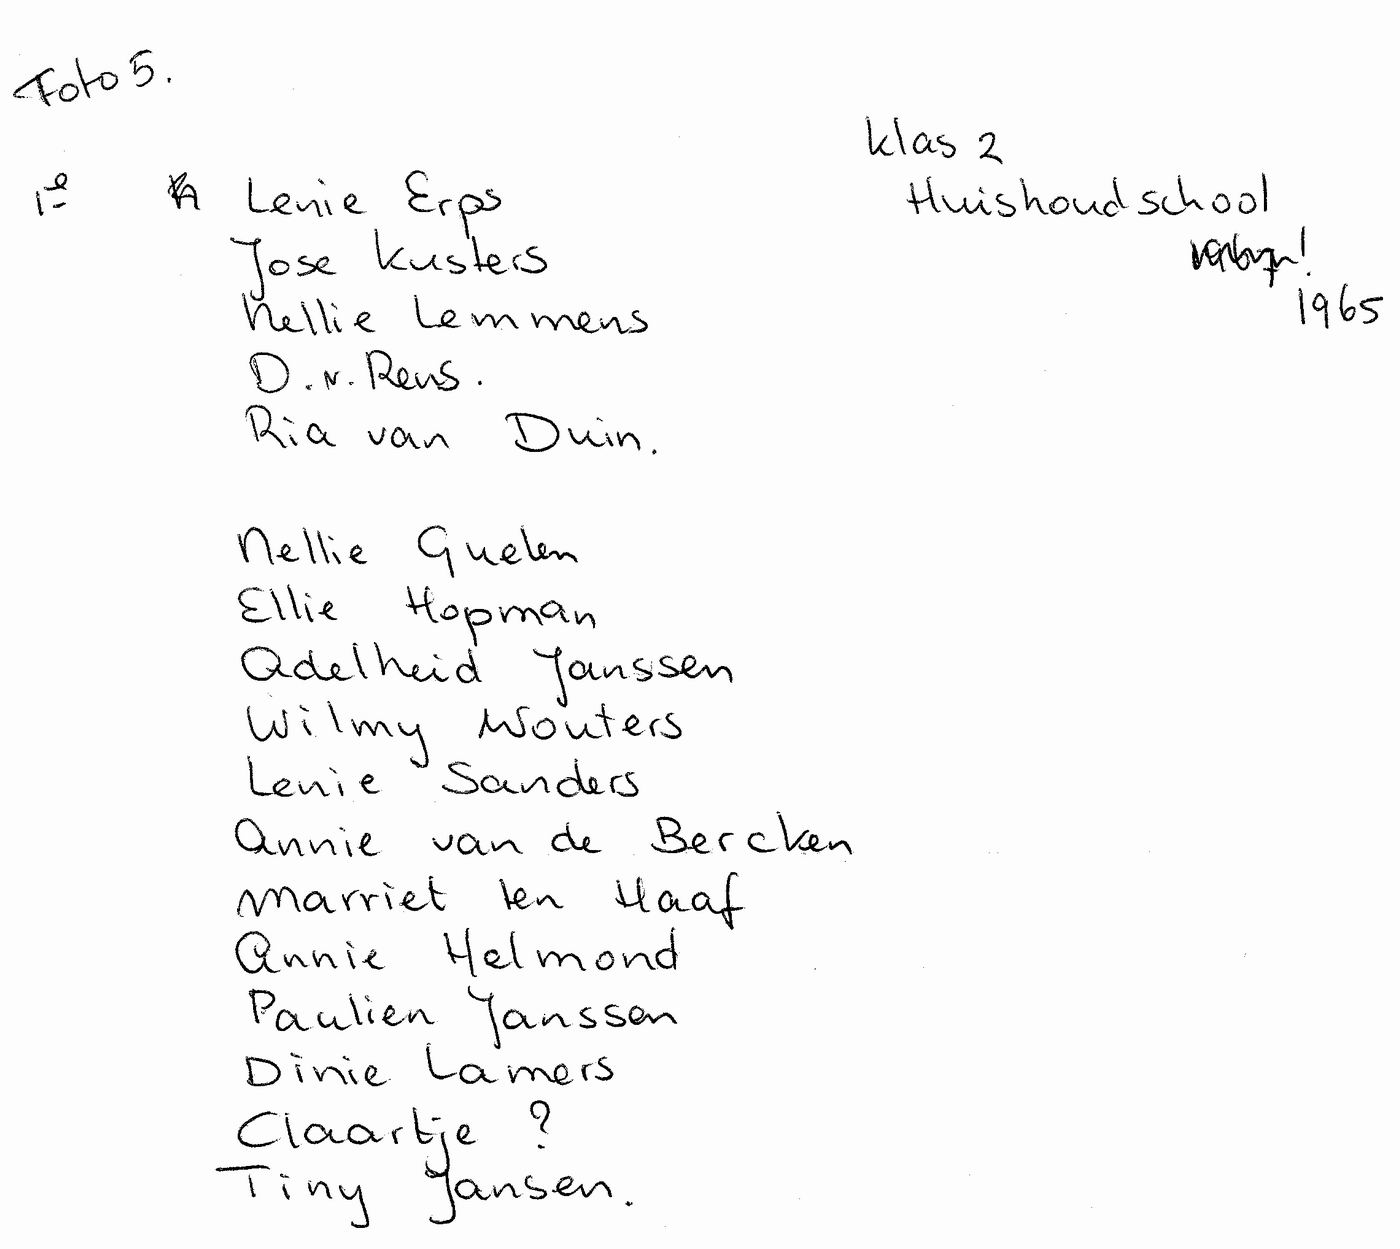 Foto 5.
klas 2
Huishoudschool
1965
1e Lenie Erps
Jose Kusters
Nellie Lemmens
D. v. Rens.
Ria van Duin.
Nellie Guelen
Ellie Hopman
Adelheid Janssen
Wilmy Wouters
Lenie Sanders
Annie van de Bercken
Marriet ten Haaf
Annie Helmond
Paulien Janssen
Dinie Lamers
Claartje ?
Tiny Jansen.